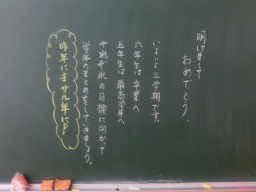 明けまして
おめでとう。
いよいよ三学期です。
六年生は卒業へ
五年生は最高学年へ
それぞれの目標に向かって
学年のまとめをしていきましょう。
昨年にまサル年に!